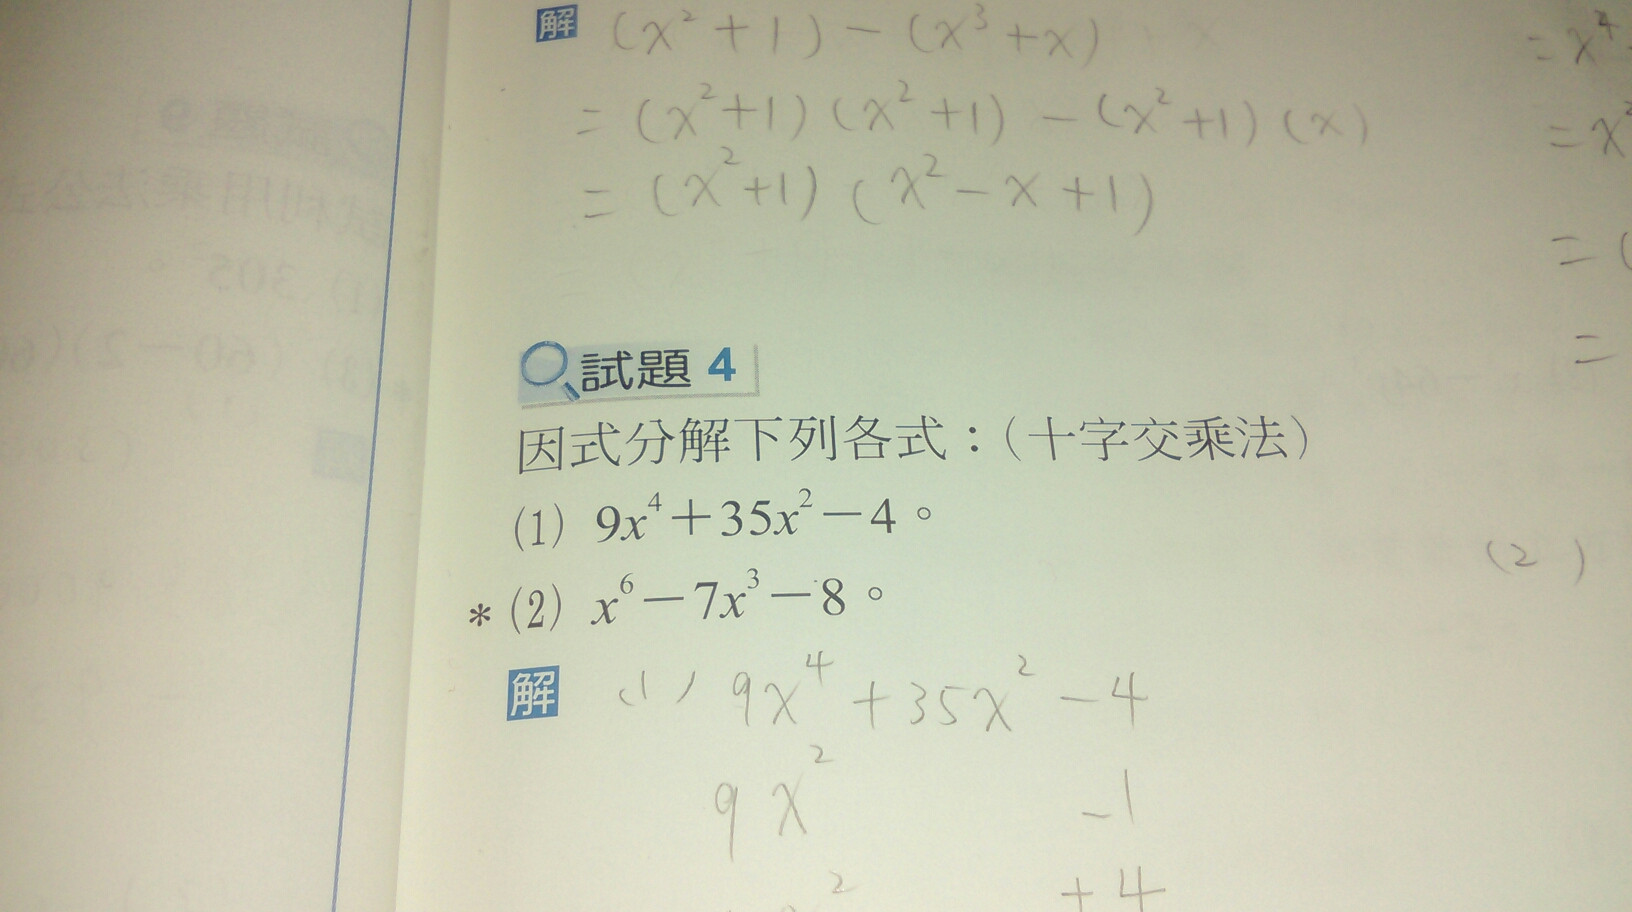 解 (x²+1)-(x³+x)
=(x²+1)(x²+1)-(x²+1)(x)
=(x²+1)(x²-x+1)
試題 4
因式分解下列各式：(十字交乘法)
(1) 9x⁴+35x²-4。
*(2) x⁶-7x³-8。
解 (1) 9x⁴+35x²-4
9x² -1
+4
=x⁴
=x
=(
=
(2)